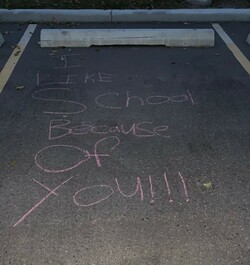 I
LIKE
School
Because
Of
You!!!